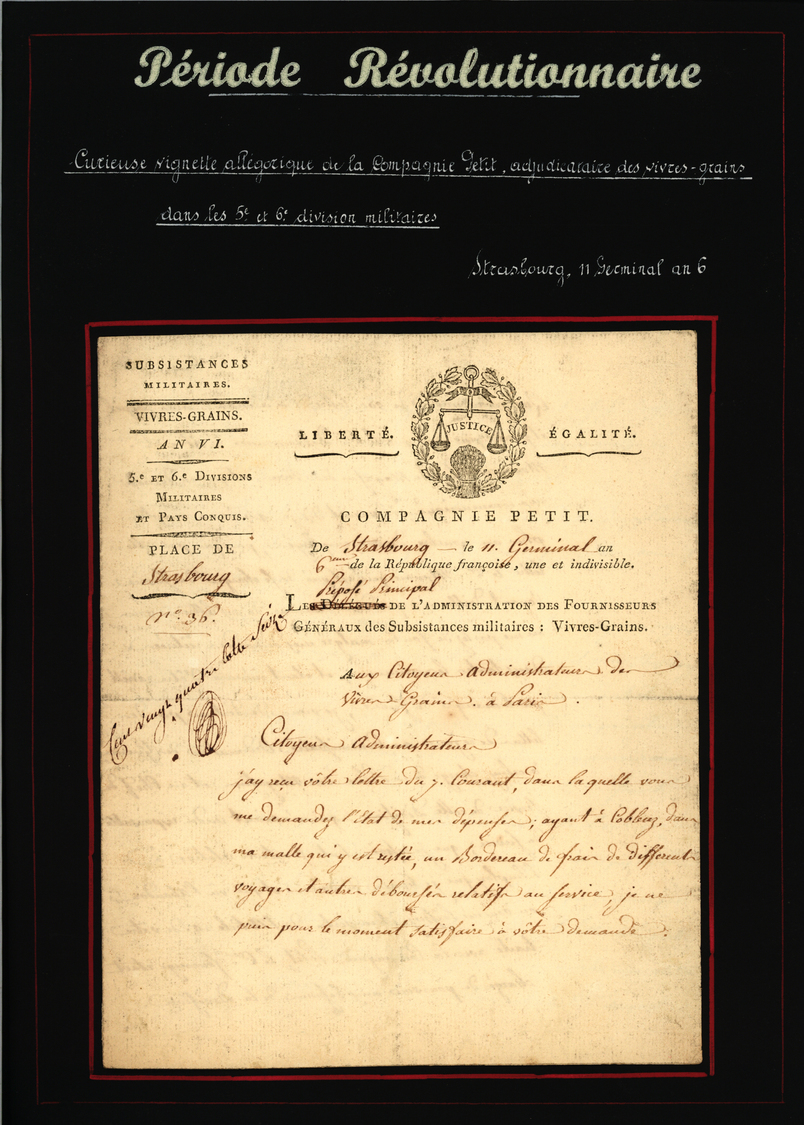 Période Révolutionnaire
Curieuse vignette allégorique de la Compagnie Petit, adjudicataire des vivres-grains
dans les 5e et 6e division militaires
Strasbourg, 11 Germinal an 6
SUBSISTANCES
MILITAIRES.
VIVRES-GRAINS.
AN VI.
5.e ET 6.e DIVISIONS
MILITAIRES
ET PAYS CONQUIS.
PLACE DE
Strasbourg
N.o 36.
LIBERTÉ.
JUSTICE
ÉGALITÉ.
COMPAGNIE PETIT.
De Strasbourg — le 11. Germinal an
6eme de la République françoise, une et indivisible.
Préposé Principal
LES DÉLÉGUÉS DE L'ADMINISTRATION DES FOURNISSEURS
GÉNÉRAUX des Subsistances militaires : Vivres-Grains.
Aux Citoyens Administrateurs des
Vivres Grains. à Paris.
Citoyens Administrateurs
j'ay reçu vôtre lettre du 7. Courant, dans laquelle vous
me demandez l'Etat de mes dépenses; ayant à Coblenz, dans
ma malle qui y est restée, un Bordereau de frais de différents
voyages et autres déboursés relatifs au service, je ne
puis pour le moment satisfaire à vôtre demande.